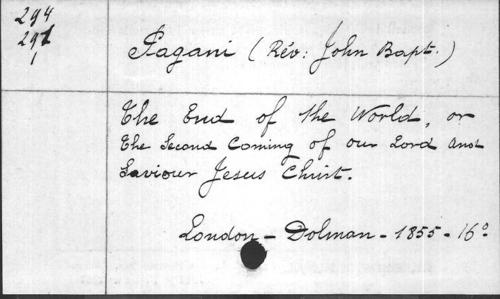 294
291
1
Pagani (Rév: John Bapt.)
The End of the World, or
the Second Coming of our Lord and
Saviour Jesus Christ.
London - Dolman - 1855 - 16º